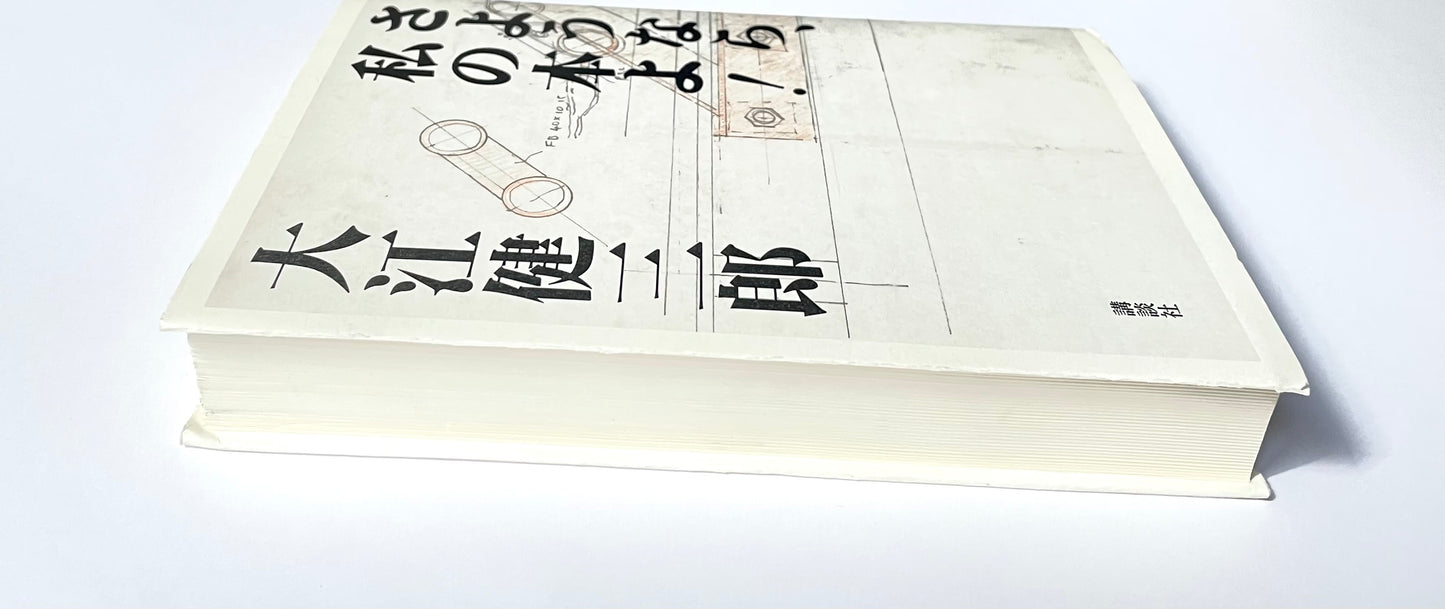 さようなら、
私の本よ!
FB 40×10
大江健三郎
講談社